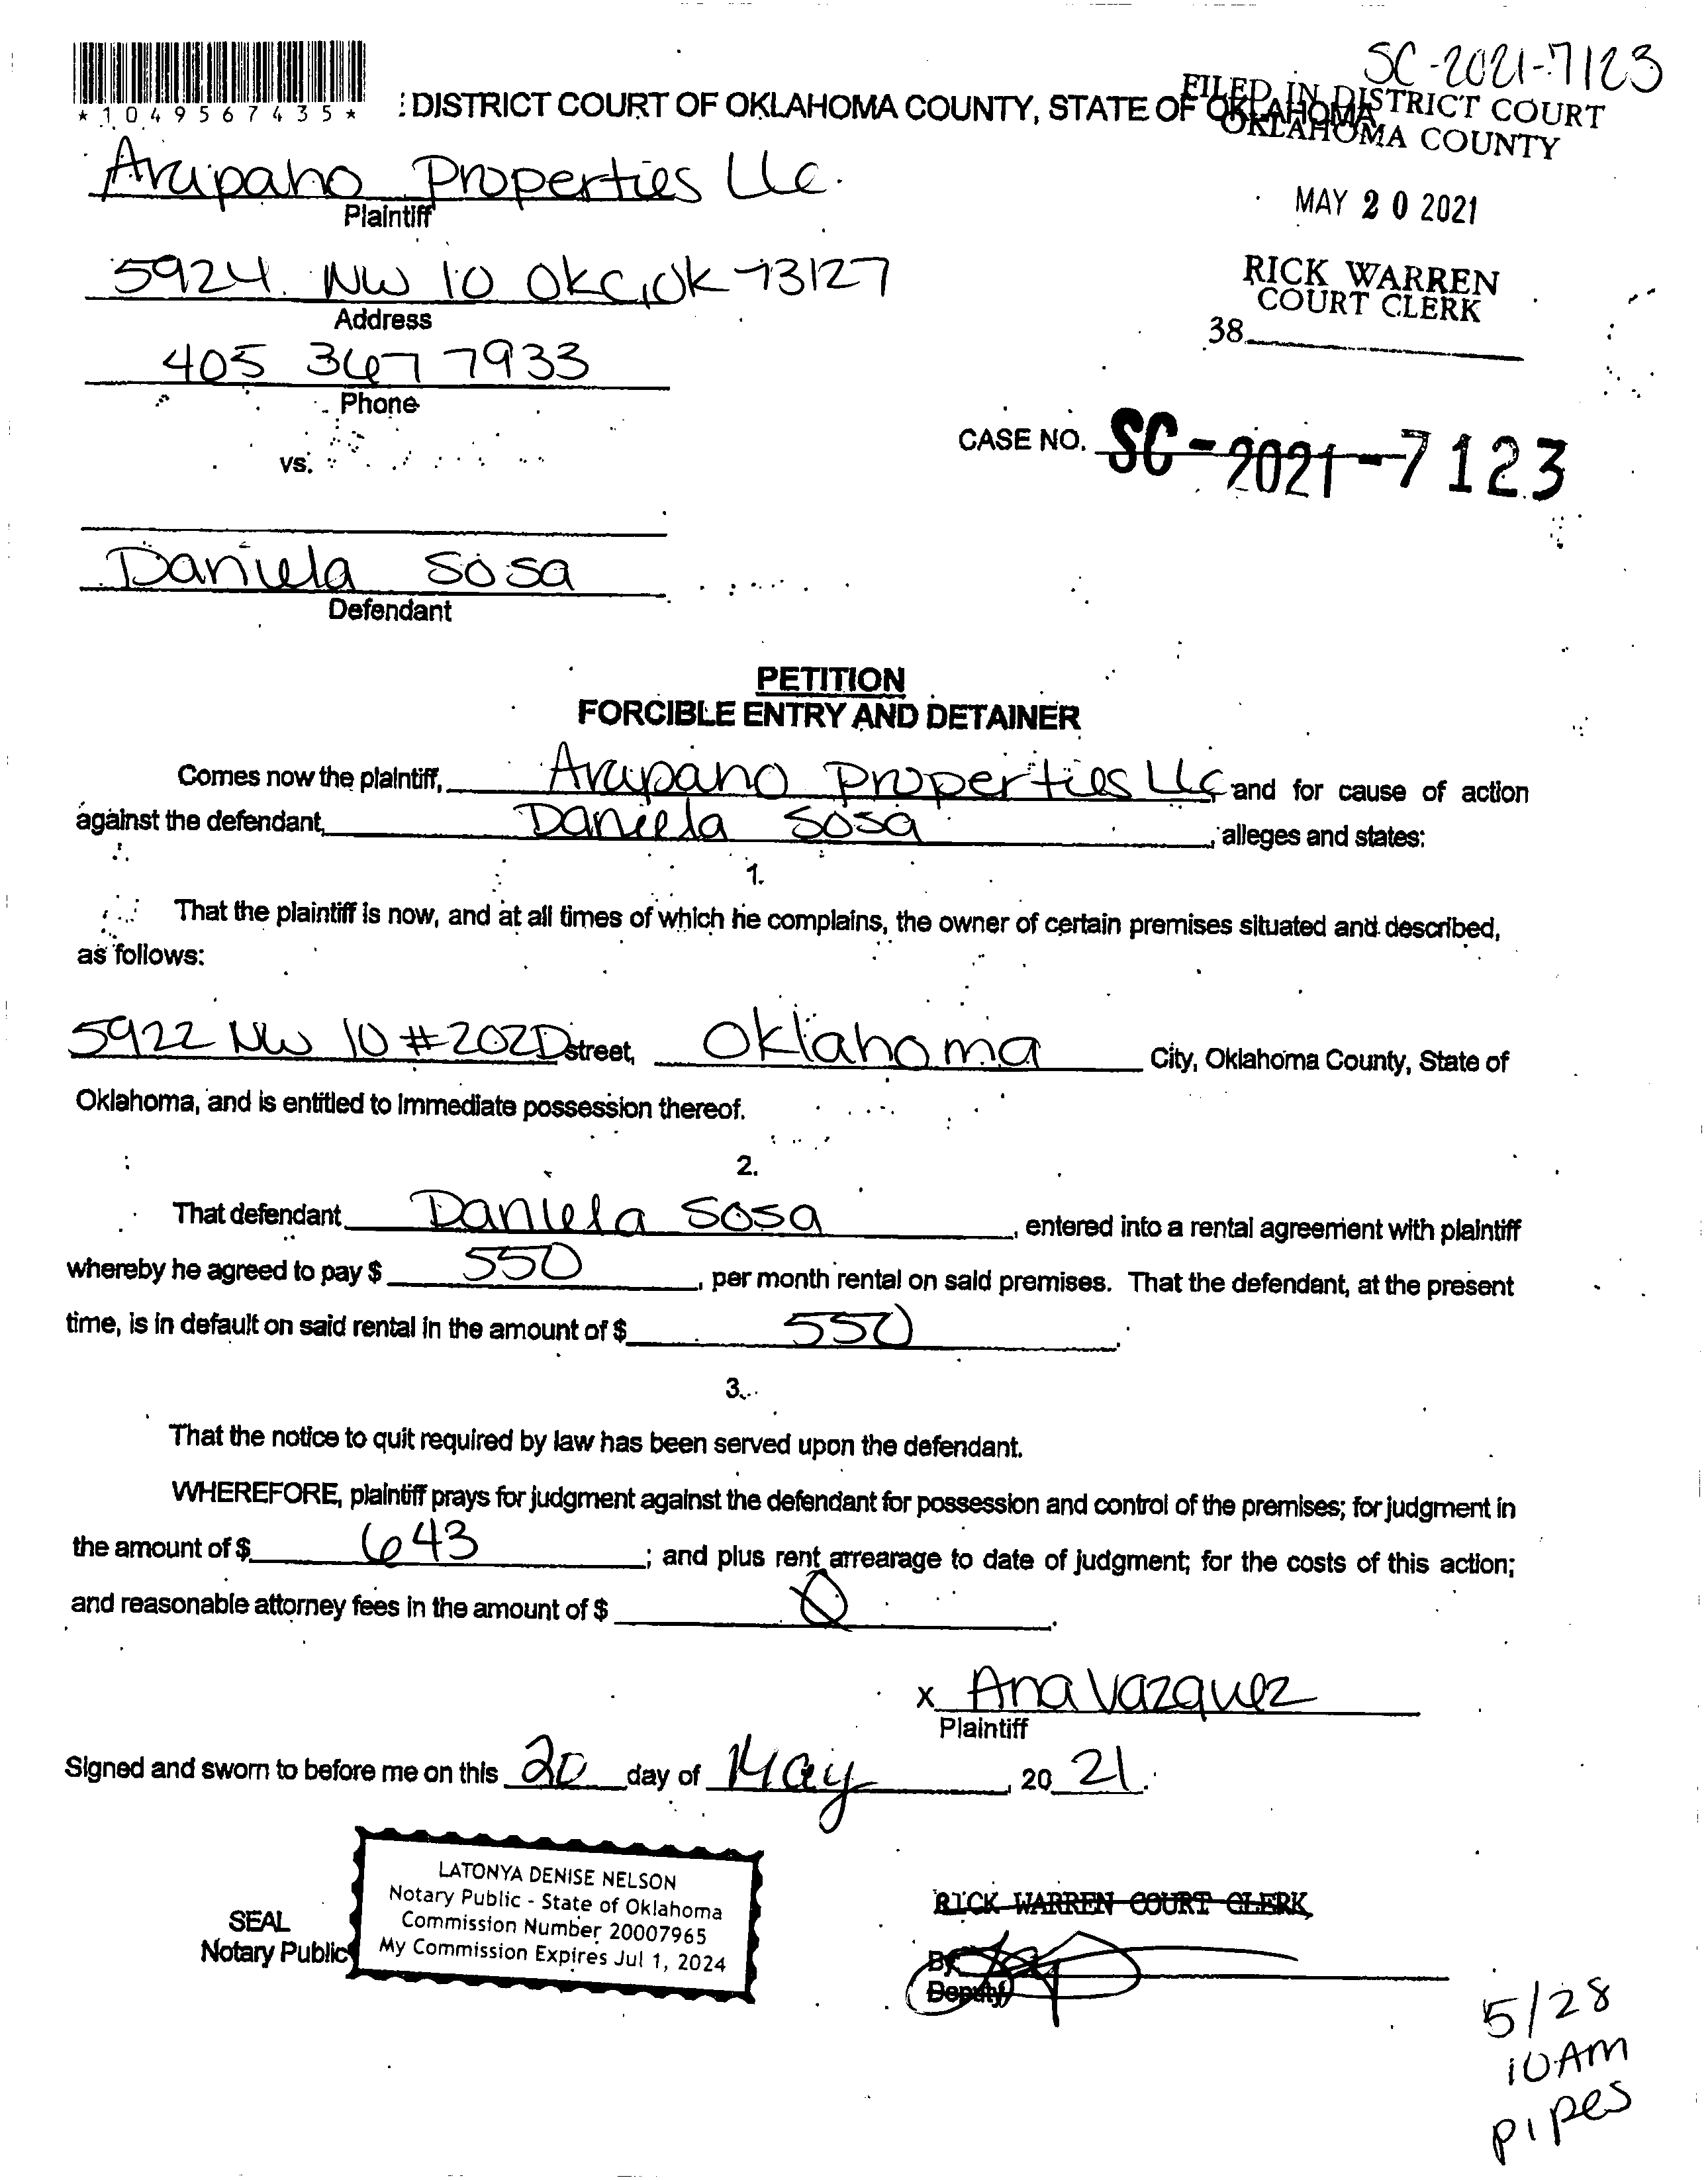 SC-2021-7123
*1049567435*
: DISTRICT COURT OF OKLAHOMA COUNTY, STATE OF OKLAHOMA
FILED IN DISTRICT COURT
OKLAHOMA COUNTY
Arapaho Properties LLC.
Plaintiff
MAY 20 2021
5924 NW 10 OKC, OK 73127
Address
RICK WARREN
COURT CLERK
38
405 367 7933
Phone
CASE NO. SC-2021-7123
vs.
Daniela Sosa
Defendant
PETITION
FORCIBLE ENTRY AND DETAINER
Comes now the plaintiff, Arapaho Properties LLC and for cause of action
against the defendant, Daniela Sosa, alleges and states:
1.
That the plaintiff is now, and at all times of which he complains, the owner of certain premises situated and described,
as follows:
5922 NW 10 #202D street, Oklahoma City, Oklahoma County, State of
Oklahoma, and is entitled to immediate possession thereof.
2.
That defendant Daniela Sosa, entered into a rental agreement with plaintiff
whereby he agreed to pay $ 550, per month rental on said premises. That the defendant, at the present
time, is in default on said rental in the amount of $ 550.
3.
That the notice to quit required by law has been served upon the defendant.
WHEREFORE, plaintiff prays for judgment against the defendant for possession and control of the premises; for judgment in
the amount of $ 643; and plus rent arrearage to date of judgment; for the costs of this action;
and reasonable attorney fees in the amount of $ 0.
x Ana Vazquez
Plaintiff
Signed and sworn to before me on this 20 day of May, 2021.
LATONYA DENISE NELSON
Notary Public - State of Oklahoma
Commission Number 20007965
My Commission Expires Jul 1, 2024
SEAL
Notary Public
RICK WARREN COURT CLERK
By
Deputy
5/28
10AM
pipes